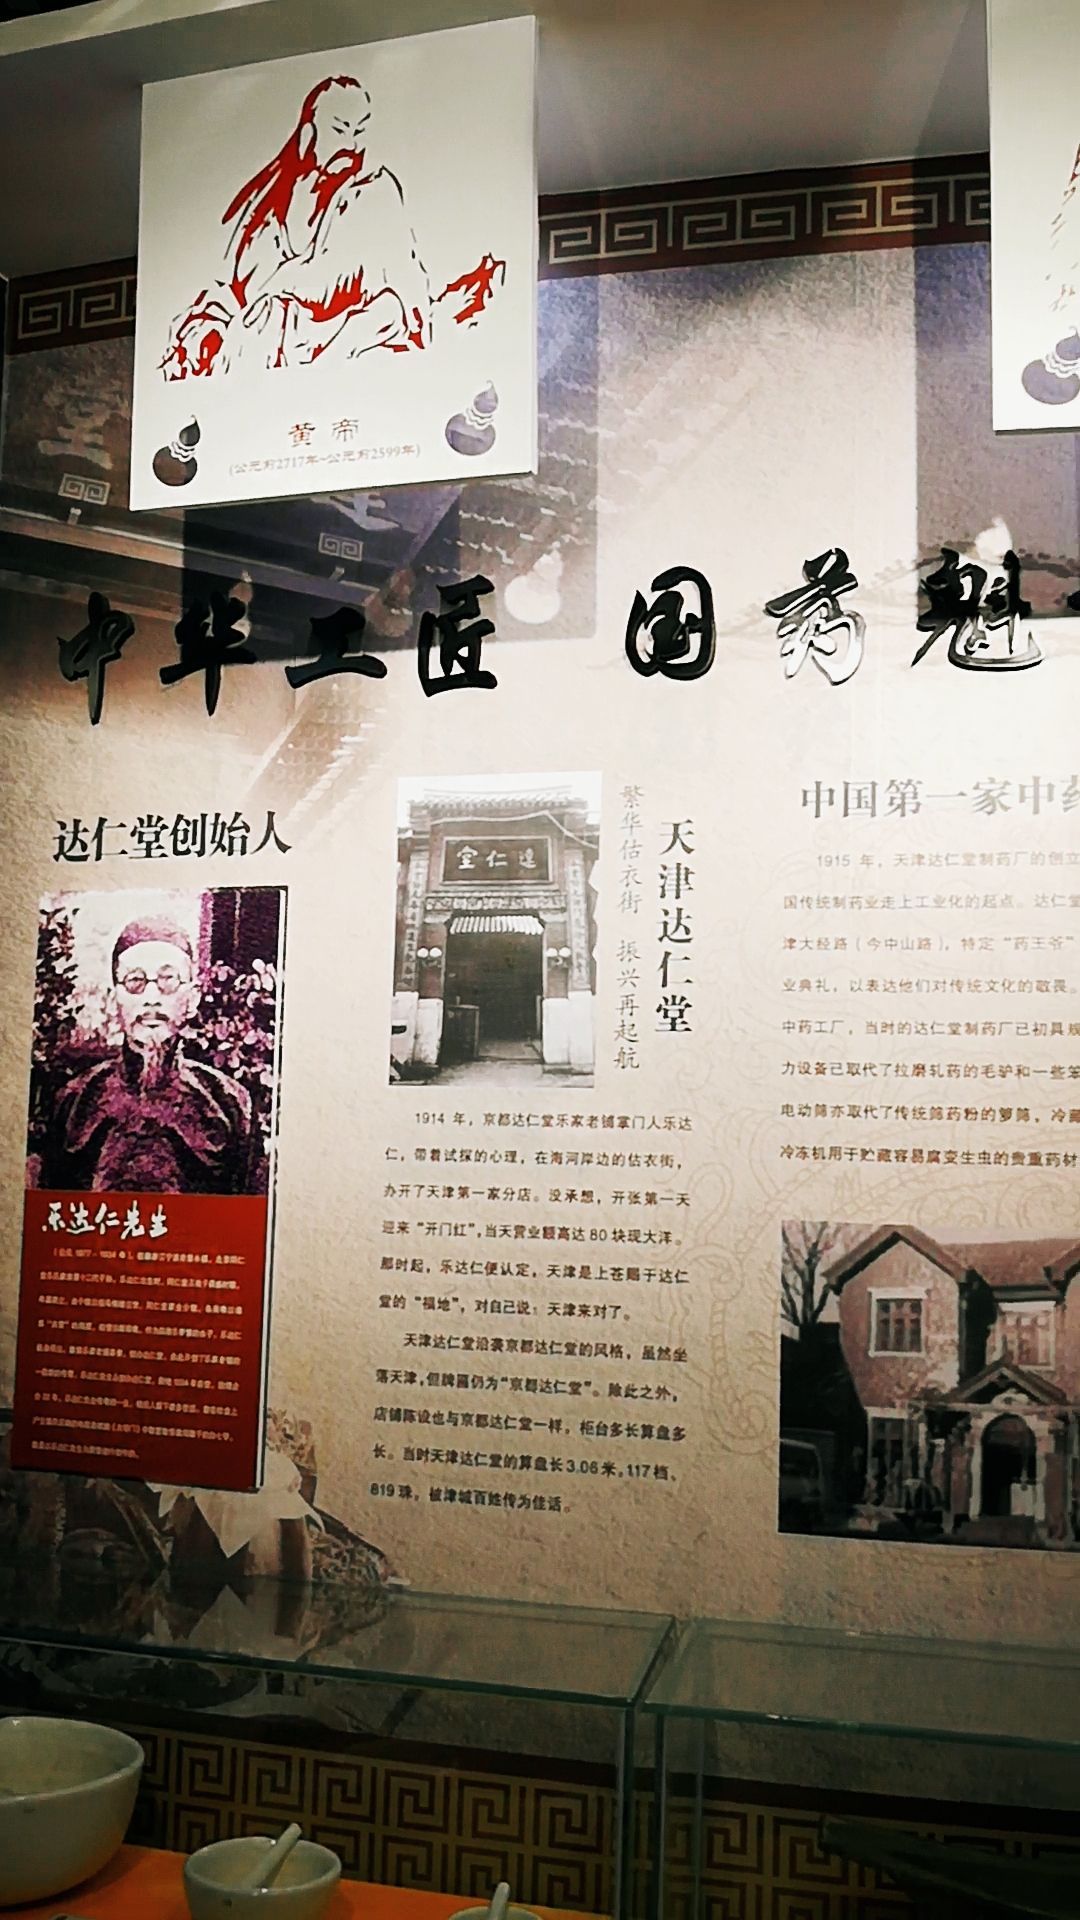 黄帝
(公元前2717年~公元前2599年)
中华工匠 国药魁
达仁堂创始人
乐达仁先生
達仁堂
繁华估衣街 振兴再起航
天津达仁堂
1914 年，京都达仁堂乐家老铺掌门人乐达
仁，带着试探的心理，在海河岸边的估衣街，
办开了天津第一家分店。没承想，开张第一天
迎来“开门红”，当天营业额高达 80 块现大洋。
那时起，乐达仁便认定，天津是上苍赐于达仁
堂的“福地”，对自己说：天津来对了。
天津达仁堂沿袭京都达仁堂的风格，虽然坐
落天津，但牌匾仍为“京都达仁堂”。除此之外，
店铺陈设也与京都达仁堂一样，柜台多长算盘多
长。当时天津达仁堂的算盘长 3.06 米，117 档、
819 珠，被津城百姓传为佳话。
中国第一家中药
1915 年，天津达仁堂制药厂的创立
国传统制药业走上工业化的起点。达仁堂
津大经路（今中山路），特定“药王爷”
业典礼，以表达他们对传统文化的敬畏。
中药工厂，当时的达仁堂制药厂已初具规
力设备已取代了拉磨轧药的毛驴和一些笨
电动筛亦取代了传统筛药粉的箩筛，冷藏
冷冻机用于贮藏容易腐变生虫的贵重药材